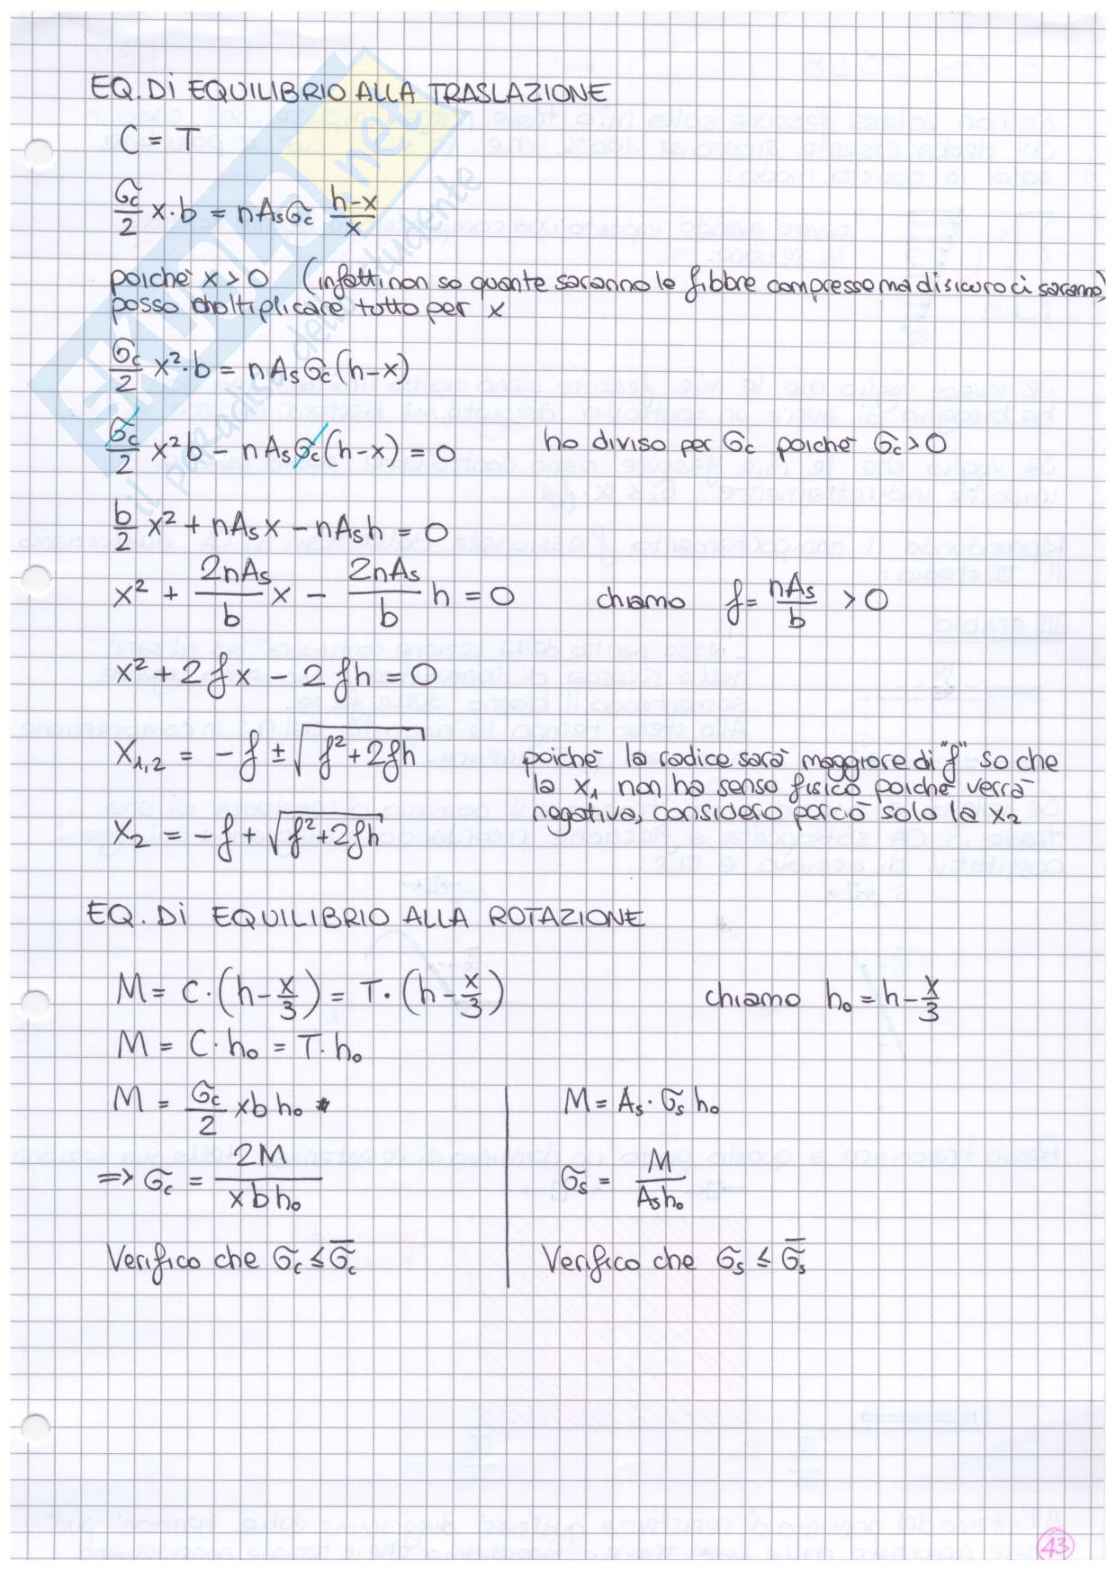 EQ. DI EQUILIBRIO ALLA TRASLAZIONE
C = T
σc/2 x·b = nAsσc (h-x)/x
poiché x>0 (infatti non so quante saranno le fibbre compresse ma di sicuro ci saranno)
posso moltiplicare tutto per x
σc/2 x²·b = nAsσc(h-x)
σc/2 x²b - nAsσc(h-x) = 0 ho diviso per σc poiché σc>0
b/2 x² + nAsx - nAsh = 0
x² + 2nAs/b x - 2nAs/b h = 0 chiamo f = nAs/b > 0
x² + 2fx - 2fh = 0
x1,2 = -f ± √(f²+2fh) poiché la radice sarà maggiore di "f" so che
la x1 non ha senso fisico poiché verrà
negativa, considero perciò solo la x2
x2 = -f + √(f²+2fh)
EQ. DI EQUILIBRIO ALLA ROTAZIONE
M = C·(h-x/3) = T·(h-x/3) chiamo h0 = h-x/3
M = C·h0 = T·h0
M = σc/2 xb h0 M = As·σs h0
=> σc = 2M/(x b h0) σs = M/(As h0)
Verifico che σc ≤ σ̄c Verifico che σs ≤ σ̄s
43
SKUOLA.net
il paradiso dello studente